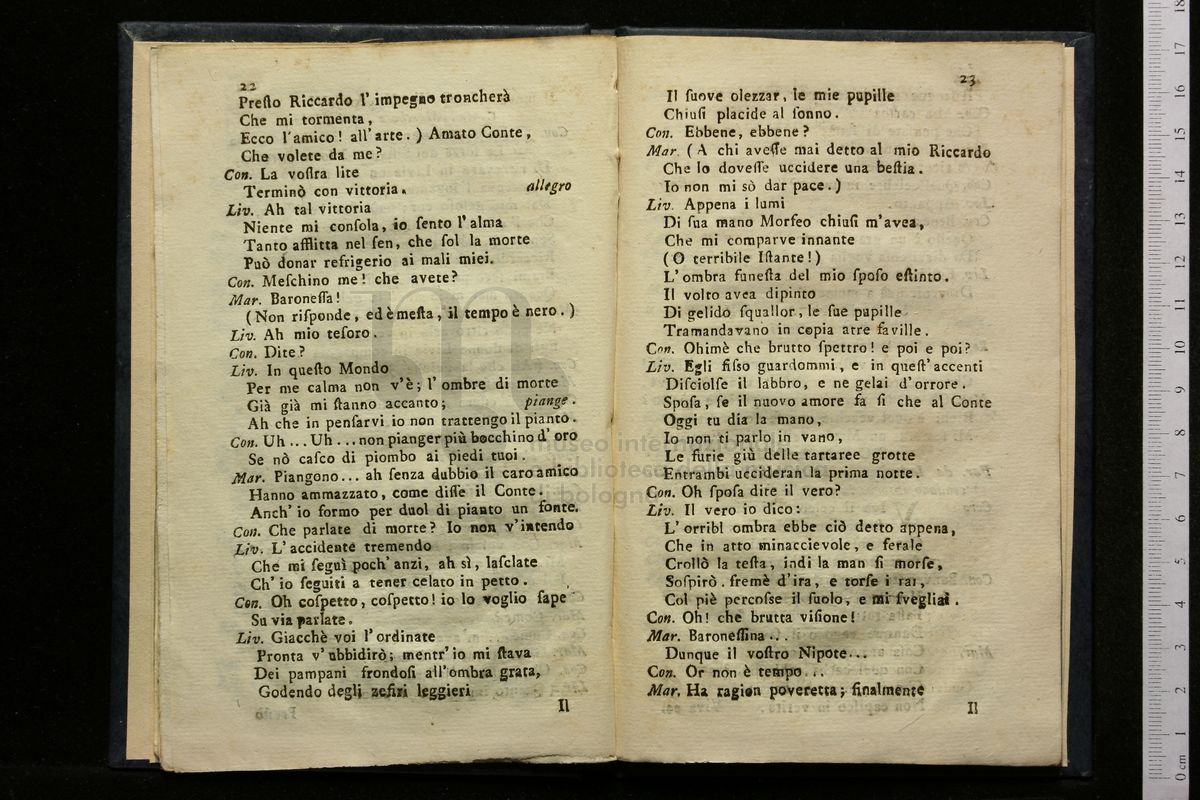 22
Preſto Riccardo l' impegno troncherà
Che mi tormenta,
Ecco l'amico! all'arte. ) Amato Conte,
Che volete da me?
Con. La voſtra lite
Terminò con vittoria. allegro
Liv. Ah tal vittoria
Niente mi conſola, io ſento l'alma
Tanto afflitta nel ſen, che ſol la morte
Può donar refrigerio ai mali miei.
Con. Meſchino me! che avete?
Mar. Baroneſſa!
(Non riſponde, ed è meſta, il tempo è nero. )
Liv. Ah mio teſoro.
Con. Dite?
Liv. In queſto Mondo
Per me calma non v'è; l'ombre di morte
Già già mi ſtanno accanto; piange.
Ah che in penſarvi io non trattengo il pianto.
Con. Uh ... Uh ... non pianger più bocchino d' oro
Se nò caſco di piombo ai piedi tuoi.
Mar. Piangono... ah ſenza dubbio il caro amico
Hanno ammazzato, come diſſe il Conte.
Anch' io formo per duol di pianto un fonte.
Con. Che parlate di morte? Io non v'intendo
Liv. L'accidente tremendo
Che mi ſeguì poch' anzi, ah sì, laſclate
Ch' io ſeguiti a tener celato in petto.
Con. Oh coſpetto, coſpetto! io lo voglio ſape
Su via parlate.
Liv. Giacchè voi l'ordinate
Pronta v' ubbidirò; mentr' io mi ſtava
Dei pampani frondoſi all'ombra grata,
Godendo degli zefiri leggieri
Il
23
Il ſuove olezzar, le mie pupille
Chiuſi placide al ſonno.
Con. Ebbene, ebbene?
Mar. ( A chi aveſſe mai detto al mio Riccardo
Che lo doveſſe uccidere una beſtia.
Io non mi sò dar pace. )
Liv. Appena i lumi
Di ſua mano Morfeo chiuſi m'avea,
Che mi comparve innante
(O terribile Iſtante!)
L'ombra funeſta del mio ſpoſo eſtinto.
Il volto avea dipinto
Di gelido ſquallor, le ſue pupille
Tramandavano in copia atre faville.
Con. Ohimè che brutto ſpettro! e poi e poi?
Liv. Egli fiſso guardommi, e in queſt'accenti
Diſciolſe il labbro, e ne gelai d'orrore.
Spoſa, ſe il nuovo amore fa ſi che al Conte
Oggi tu dia la mano,
Io non ti parlo in vano,
Le furie giù delle tartaree grotte
Entrambi uccideran la prima notte.
Con. Oh ſpoſa dite il vero?
Liv. Il vero io dico:
L'orribl ombra ebbe ciò detto appena,
Che in atto minaccievole, e ferale
Crollò la teſta, indi la man ſi morſe,
Soſpirò. fremè d'ira, e torſe i rai,
Col piè percoſse il ſuolo, e mi ſvegliai.
Con. Oh! che brutta viſione!
Mar. Baroneſſina...
Dunque il voſtro Nipote...
Con. Or non è tempo...
Mar. Ha ragion poveretta; finalmente
Il
museo internazionale
biblioteca della musica
di bologna